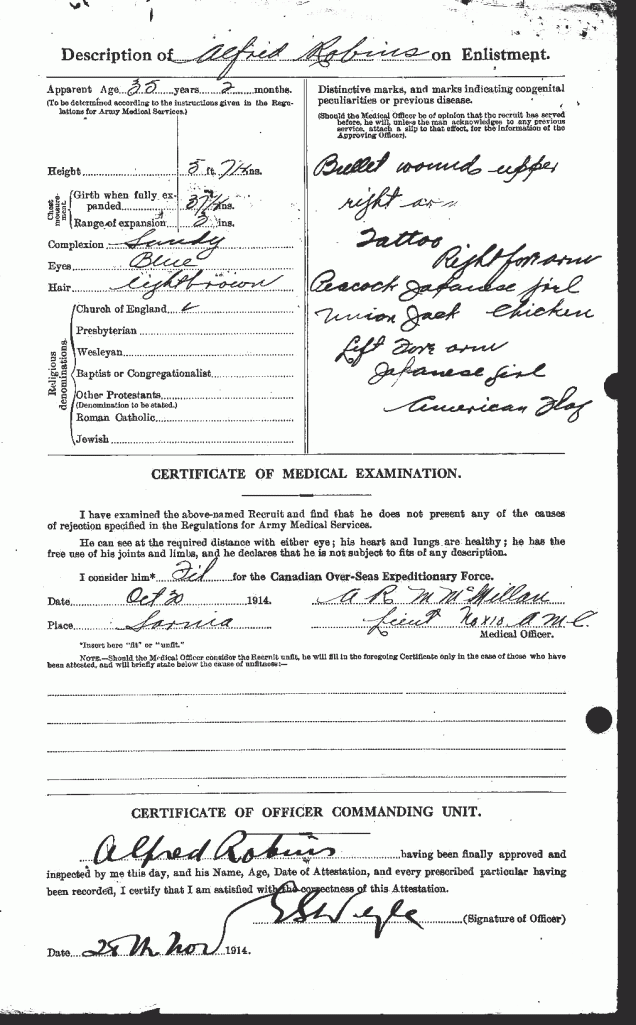 Description of Alfred Robins on Enlistment.
Apparent Age 35 years 2 months.
(To be determined according to the instructions given in the Regulations for Army Medical Services.)
Height 5 ft. 7 ins.
Chest measurement.
Girth when fully expanded 37 ins.
Range of expansion 3 ins.
Complexion Sandy
Eyes Blue
Hair light brown
Religious denominations.
Church of England ✓
Presbyterian
Wesleyan
Baptist or Congregationalist
Other Protestants
(Denomination to be stated.)
Roman Catholic
Jewish
Distinctive marks, and marks indicating congenital
peculiarities or previous disease.
(Should the Medical Officer be of opinion that the recruit has served
before, he will, unless the man acknowledges to any previous
service, attach a slip to that effect, for the information of the
Approving Officer).
Bullet wound upper
right arm
Tattoo
Right fore arm
Peacock Japanese girl
Union Jack Chicken
Left Fore arm
Japanese girl
American Flag
CERTIFICATE OF MEDICAL EXAMINATION.
I have examined the above-named Recruit and find that he does not present any of the causes
of rejection specified in the Regulations for Army Medical Services.
He can see at the required distance with either eye; his heart and lungs are healthy; he has the
free use of his joints and limbs, and he declares that he is not subject to fits of any description.
I consider him* Fit for the Canadian Over-Seas Expeditionary Force.
Date Oct 30 1914.
A R M McMillan
Place Sarnia
Lieut No X10 A.M.C.
Medical Officer.
*Insert here "fit" or "unfit."
NOTE.—Should the Medical Officer consider the Recruit unfit, he will fill in the foregoing Certificate only in the case of those who have
been attested, and will briefly state below the cause of unfitness:—
CERTIFICATE OF OFFICER COMMANDING UNIT.
Alfred Robins having been finally approved and
inspected by me this day, and his Name, Age, Date of Attestation, and every prescribed particular having
been recorded, I certify that I am satisfied with the correctness of this Attestation.
(Signature of Officer)
Date 28th Nov 1914.